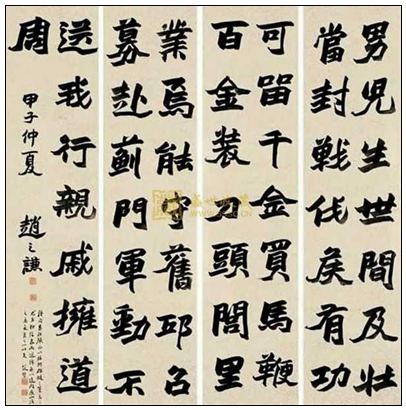 男兒生世間及壯
當封戰伐矦有功
可留千金買馬鞭
百金装刀頭閭里
業焉能守舊邱召
募赴薊門軍動不
送我行親戚擁道
周
甲子仲夏 趙之謙